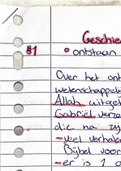 Geschie
§1 ° ontstaan
Over het ont
wetenschappelij
Allah uitge
Gabriel verza
die na zij
- veel verhalen
Bijbel voor
- er is 1 o